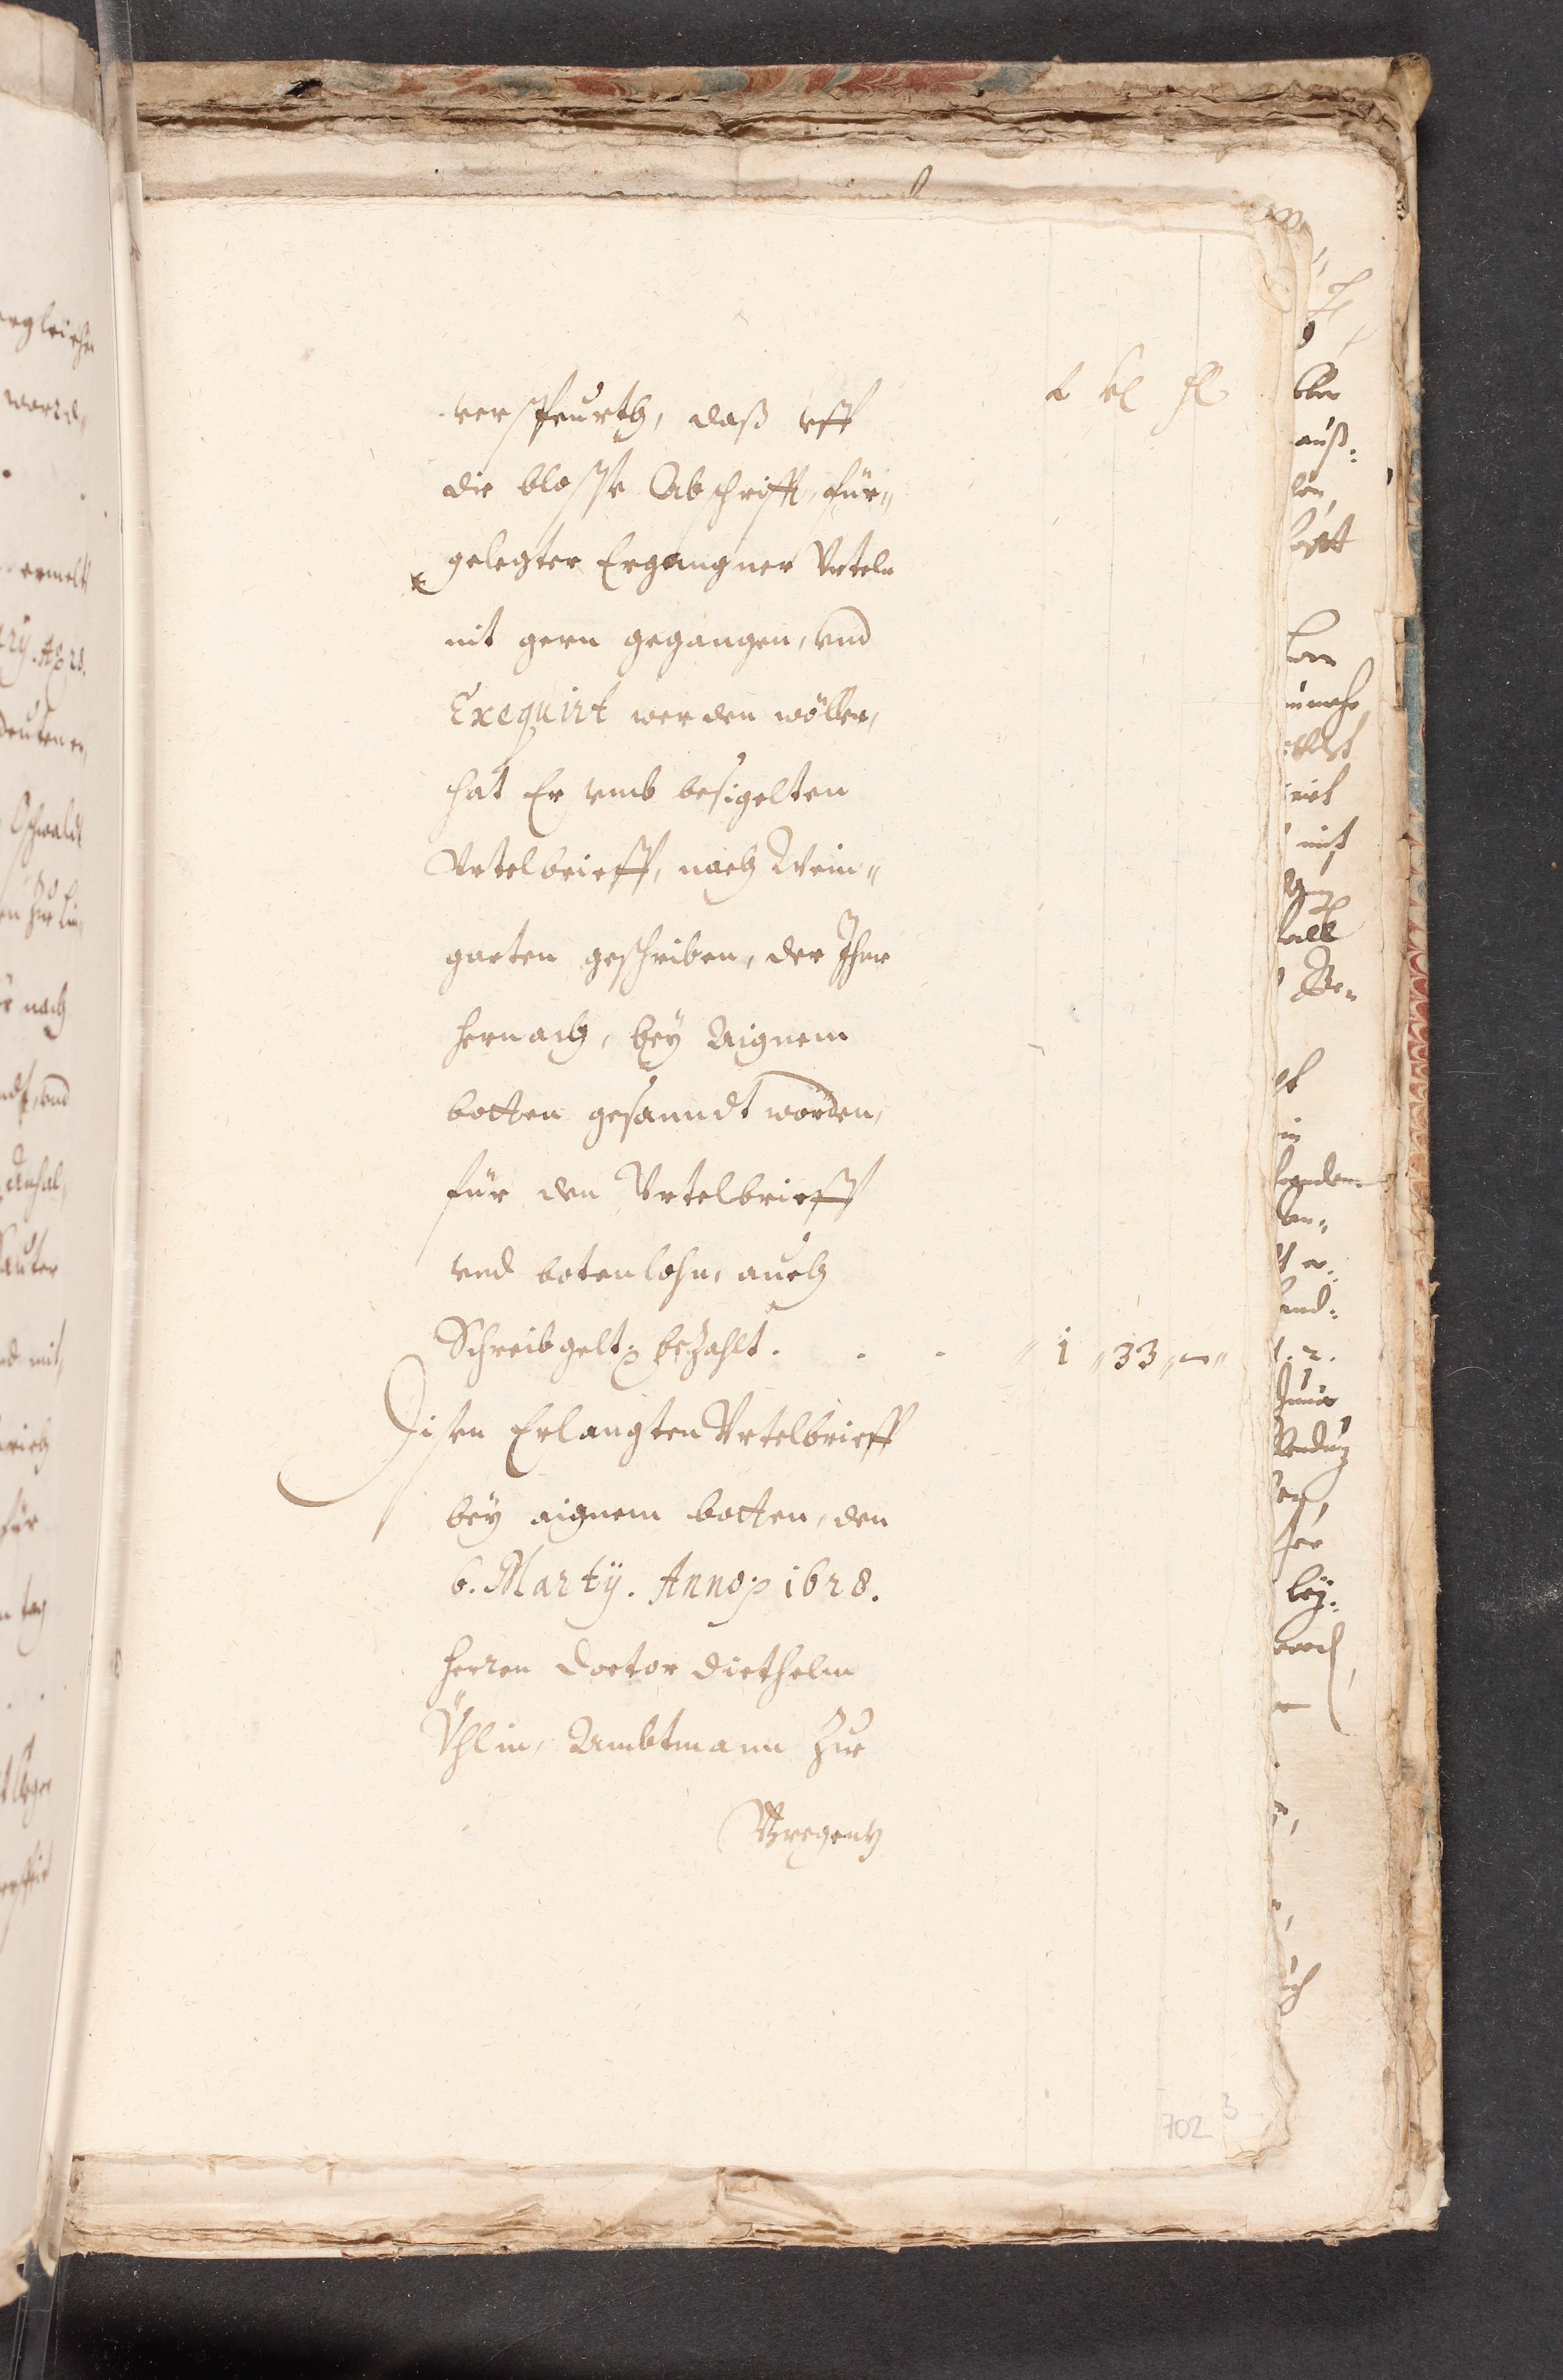 verspeurth, daß vff
die blosse Abschrifft, für„
gelegter Ergangner Vrteln
nit gern gegangen, vnd
Exequirt werden wöllen,
hat Er vmb besigelten
Vrtelbrieff, nach Wein„
garten geschriben, der Ihme
hernach, bey Aignem
botten gesanndt worden,
für den Vrtelbrieff
vnd botenlohn, auch
Schreibgelt: bezahlt . . . „ 1 „ 33 „ — „
Disen Erlangten Vrtelbrieff
bey aignem botten, den
6. Martÿ. Anno: 1628.
Herren Doctor Diethelm
Vhlin, Ambtmann Zue
Bregentz
702